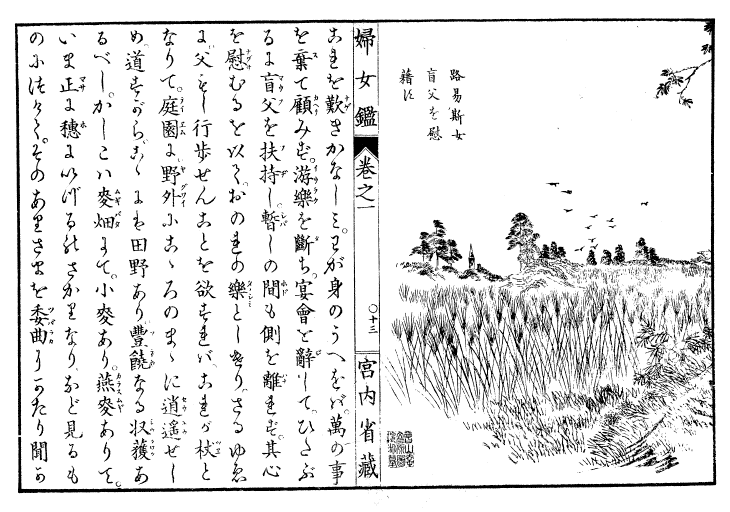 路易斯女
盲父を慰
藉す
婦女鑑
卷之一
〇十三
宮内省藏
これを歎きかなしミ。わが身のうへをバ萬の事
を棄て顧みず。游樂を斷ち。宴會を辭して。ひたぶ
るに盲父を扶持し。暫しの間も側を離れず。其心
を慰むるを以て。おのれの樂としけり。さるゆゑ
に父もし行歩せんことを欲すれバ。これが杖と
なりて。庭園に。野外にこゝろのまゝに逍遥せし
め。道すがら。こゝにも田野あり。豐饒なる収獲あ
るべし。かしこハ麥畑にて。小麥あり。燕麥ありて。
いま正に穗にいづるのさかりなり。など見るも
のにつけて。そのありさまを委曲にかたり聞か